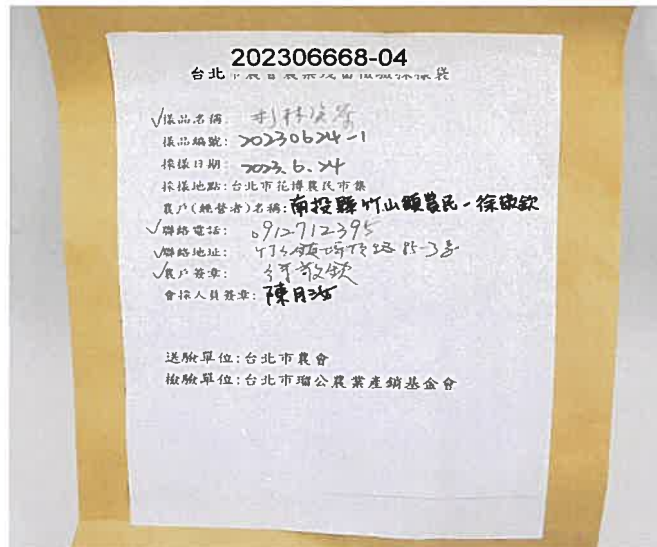 202306668-04
台北市農會農藥殘留檢驗採樣袋
✓樣品名稱: 杉林溪茶
樣品編號: 20230624-1
採樣日期: 2023.6.24
採樣地點:台北市花博農民市集
農戶(經營者)名稱:南投縣竹山鎮農民-徐敬欽
✓聯絡電話: 0912712395
✓聯絡地址: 竹山鎮坪頂路85-3號
✓農戶簽章: 徐敬欽
會採人員簽章: 陳月
送驗單位:台北市農會
檢驗單位:台北市瑠公農業產銷基金會